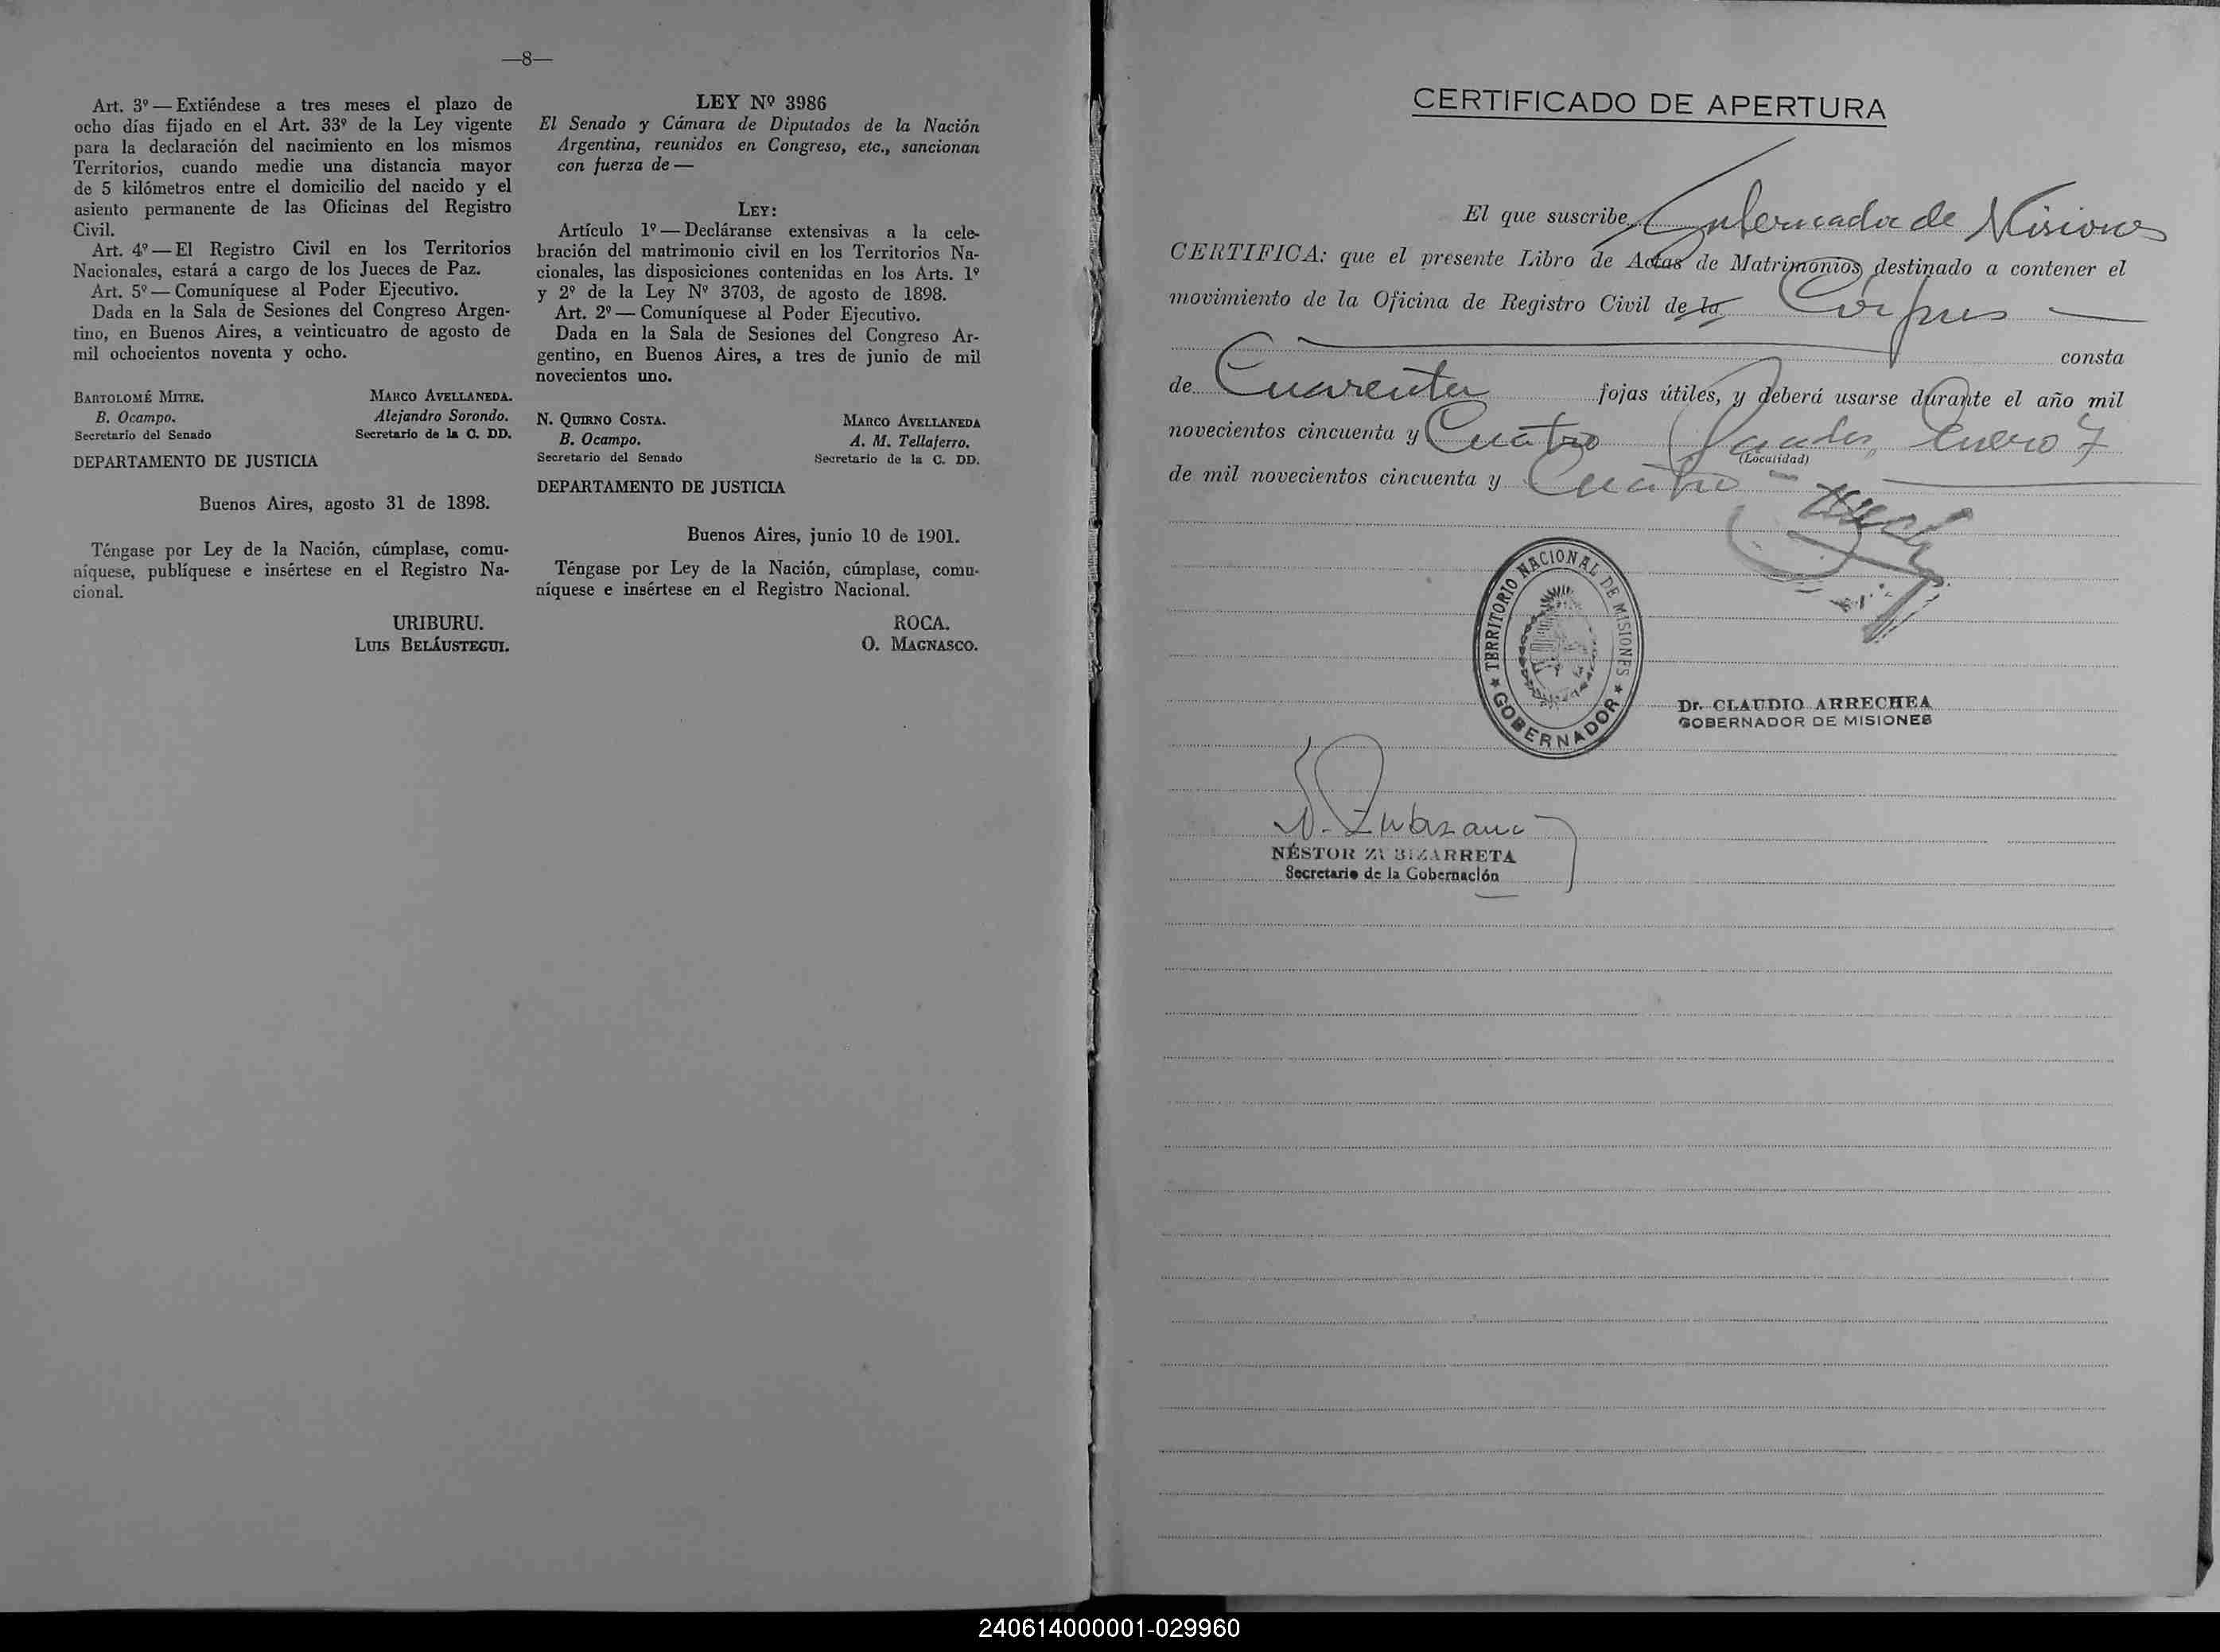 —8—
Art. 3º — Extiéndese a tres meses el plazo de
ocho días fijado en el Art. 33º de la Ley vigente
para la declaración del nacimiento en los mismos
Territorios, cuando medie una distancia mayor
de 5 kilómetros entre el domicilio del nacido y el
asiento permanente de las Oficinas del Registro
Civil.
Art. 4º — El Registro Civil en los Territorios
Nacionales, estará a cargo de los Jueces de Paz.
Art. 5º — Comuníquese al Poder Ejecutivo.
Dada en la Sala de Sesiones del Congreso Argen-
tino, en Buenos Aires, a veinticuatro de agosto de
mil ochocientos noventa y ocho.
BARTOLOMÉ MITRE. MARCO AVELLANEDA.
B. Ocampo. Alejandro Sorondo.
Secretario del Senado Secretario de la C. DD.
DEPARTAMENTO DE JUSTICIA
Buenos Aires, agosto 31 de 1898.
Téngase por Ley de la Nación, cúmplase, comu-
níquese, publíquese e insértese en el Registro Na-
cional.
URIBURU.
LUIS BELÁUSTEGUI.
LEY Nº 3986
El Senado y Cámara de Diputados de la Nación
Argentina, reunidos en Congreso, etc., sancionan
con fuerza de —
LEY:
Artículo 1º — Decláranse extensivas a la cele-
bración del matrimonio civil en los Territorios Na-
cionales, las disposiciones contenidas en los Arts. 1º
y 2º de la Ley Nº 3703, de agosto de 1898.
Art. 2º — Comuníquese al Poder Ejecutivo.
Dada en la Sala de Sesiones del Congreso Ar-
gentino, en Buenos Aires, a tres de junio de mil
novecientos uno.
N. QUIRNO COSTA. MARCO AVELLANEDA
B. Ocampo. A. M. Tellaferro.
Secretario del Senado Secretario de la C. DD.
DEPARTAMENTO DE JUSTICIA
Buenos Aires, junio 10 de 1901.
Téngase por Ley de la Nación, cúmplase, comu-
níquese e insértese en el Registro Nacional.
ROCA.
O. MAGNASCO.
CERTIFICADO DE APERTURA
El que suscribe, Gobernador de Misiones
CERTIFICA: que el presente Libro de Actas de Matrimonios, destinado a contener el
movimiento de la Oficina de Registro Civil de la Corpus —
consta
de Cuarenta fojas útiles, y deberá usarse durante el año mil
novecientos cincuenta y Cuatro Posadas, Enero 7
(Localidad)
de mil novecientos cincuenta y Cuatro -
TERRITORIO NACIONAL DE MISIONES
★ GOBERNADOR ★
Dr. CLAUDIO ARRECHEA
GOBERNADOR DE MISIONES
NÉSTOR ZUBIZARRETA
Secretario de la Gobernación
240614000001-029960